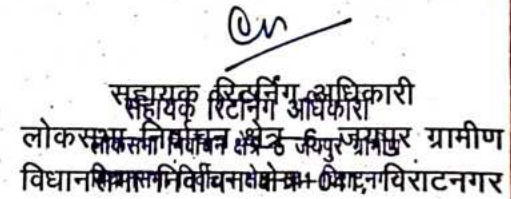 सहायक रिटर्निंग अधिकारी
सहायक रिटर्निंग अधिकारी
लोकसभा निर्वाचन क्षेत्र 6 जयपुर ग्रामीण
लोकसभा निर्वाचन क्षेत्र 6 जयपुर ग्रामीण
विधानसभा निर्वाचन क्षेत्र 041, विराटनगर